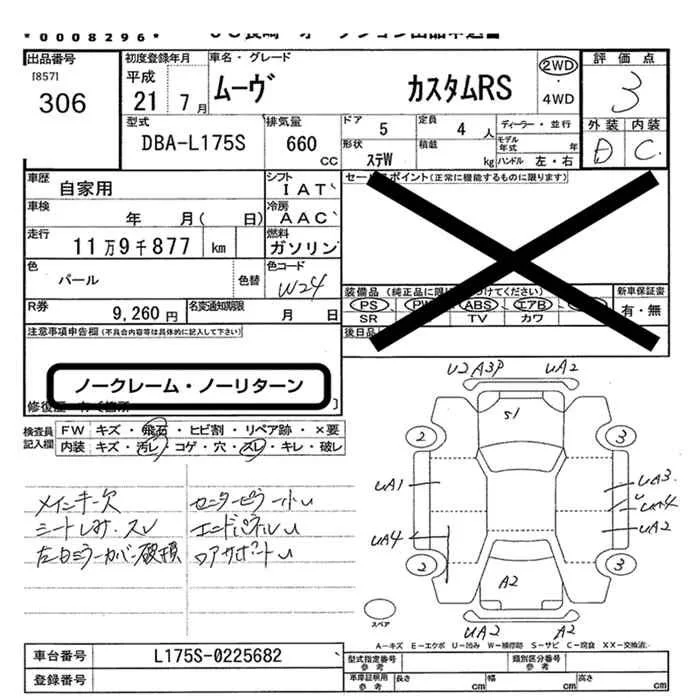 *0008296*
出品番号
[857]
306
初度登録年月
平成
21年7月
車名・グレード
ムーヴ カスタムRS
2WD
・
4WD
評価点
3
外装 内装
D C
型式
DBA-L175S
排気量
660
CC
ドア 5
定員 4 人
ディーラー・並行
形状 ステW
積載 kg
モデル年式 年
ハンドル 左・右
車歴
自家用
シフト
IAT
車検
年 月( 日)
冷房
AAC
走行
11万9千877 km
燃料
ガソリン
色
パール
色替
色コード
W24
R券
9,260円
名変通知期限
月 日
セールスポイント(正常に機能するものに限ります)
装備品
PS PW ABS エアB
SR TV カワ
新車保証書
有・無
後日品
注意事項申告欄(不具合内容等は具体的に記入して下さい)
ノークレーム・ノーリターン
検査員記入欄
FW キズ・飛石・ヒビ割・リペア跡・×要
内装 キズ・汚レ・コゲ・穴・スレ・キレ・破レ
メインキー欠
シートしみ・スレ
左ミラーカバー破損
センターピラーU
エンドパネルU
U2 A3P UA2
S1
2 3
UA1 UA3
U
UA4 UA4
UA2
2 3
A2
UA2 A2
スペア
A−キズ E−エクボ U−凹み W−補修跡 S−サビ C−腐食 XX−交換済
車台番号
L175S-0225682
登録番号
型式指定番号
参考
類別区分番号
参考
車庫証明用
参考
長さ cm 幅 cm 高さ cm